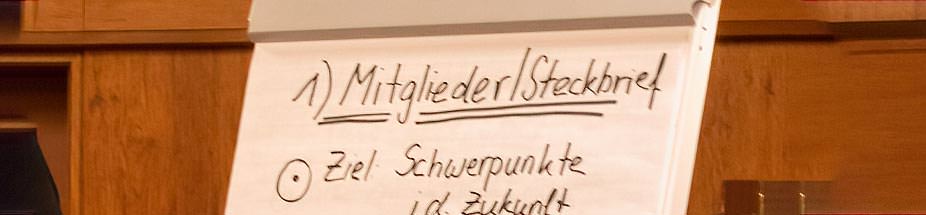 1) Mitglieder/Steckbrief
Ziel: Schwerpunkte
i.d. Zukunft